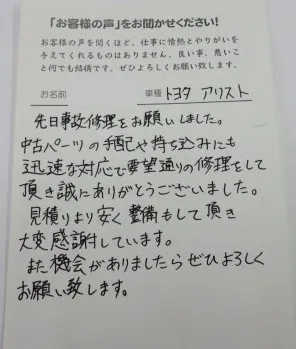 「お客様の声」をお聞かせください!
お客様の声を聞くほど、仕事に情熱とやりがいを
与えてくれるものはありません。良い事、悪いこ
と何でも結構です。ぜひよろしくお願い致します。
お名前 車種 トヨタ アリスト
先日事故修理をお願いしました。
中古パーツの手配や持ち込みにも
迅速な対応で要望通りの修理をして
頂き誠にありがとうございました。
見積りより安く整備もして頂き
大変感謝しています。
また機会がありましたらぜひよろしく
お願い致します。